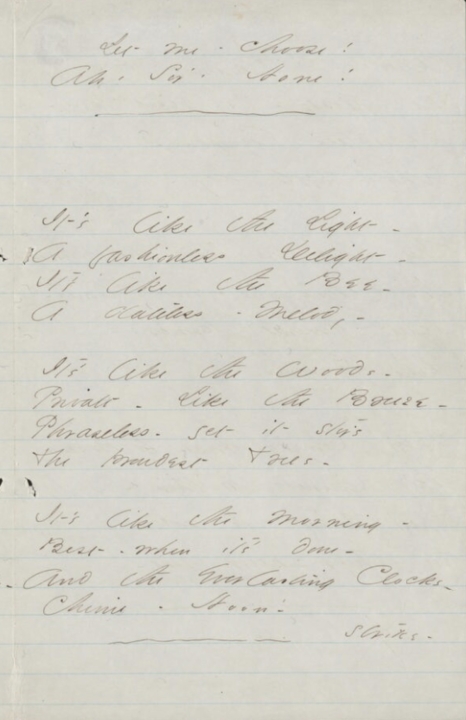 Let me - choose!
Ah - Sir - None!
It's like the Light -
A fashionless Delight -
It's like the Bee -
A dateless - Melody -
It's like the Woods -
Private - Like the Breeze -
Phraseless - yet it stirs
The proudest Trees -
It's like the Morning -
Best - when it's done -
And the Everlasting Clocks -
Chime - Noon!
strike -